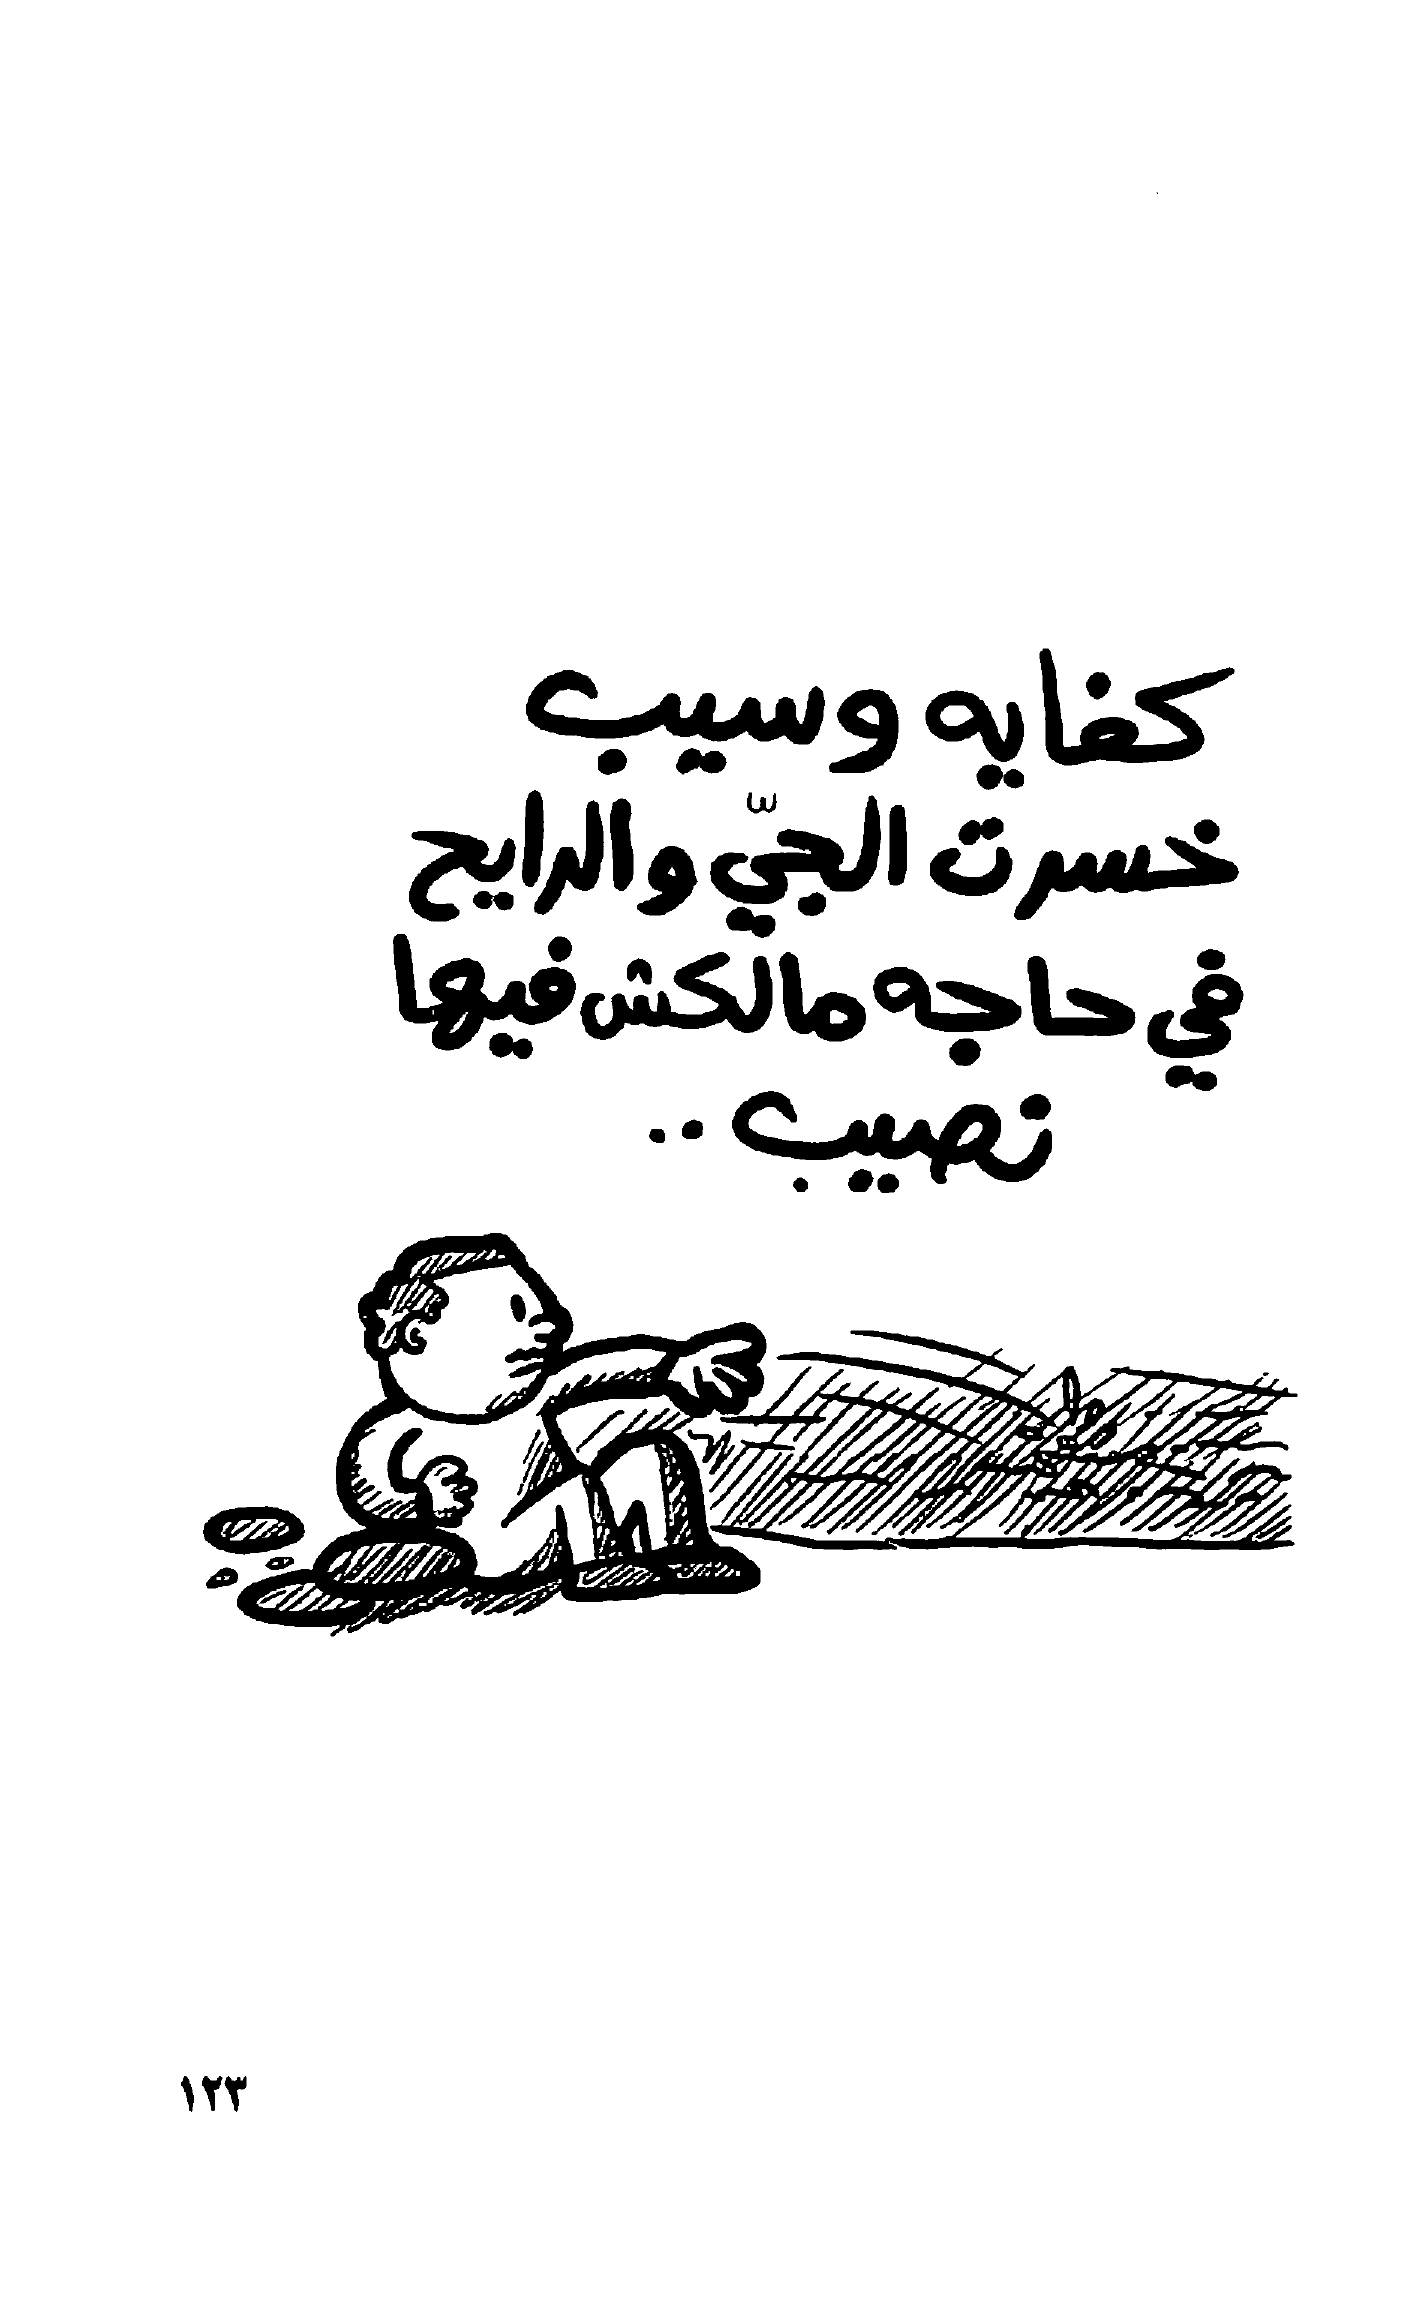 كفايه وسيب
خسرت الجيّ والرايح
في حاجه مالكش فيها
نصيب ..
١٢٣